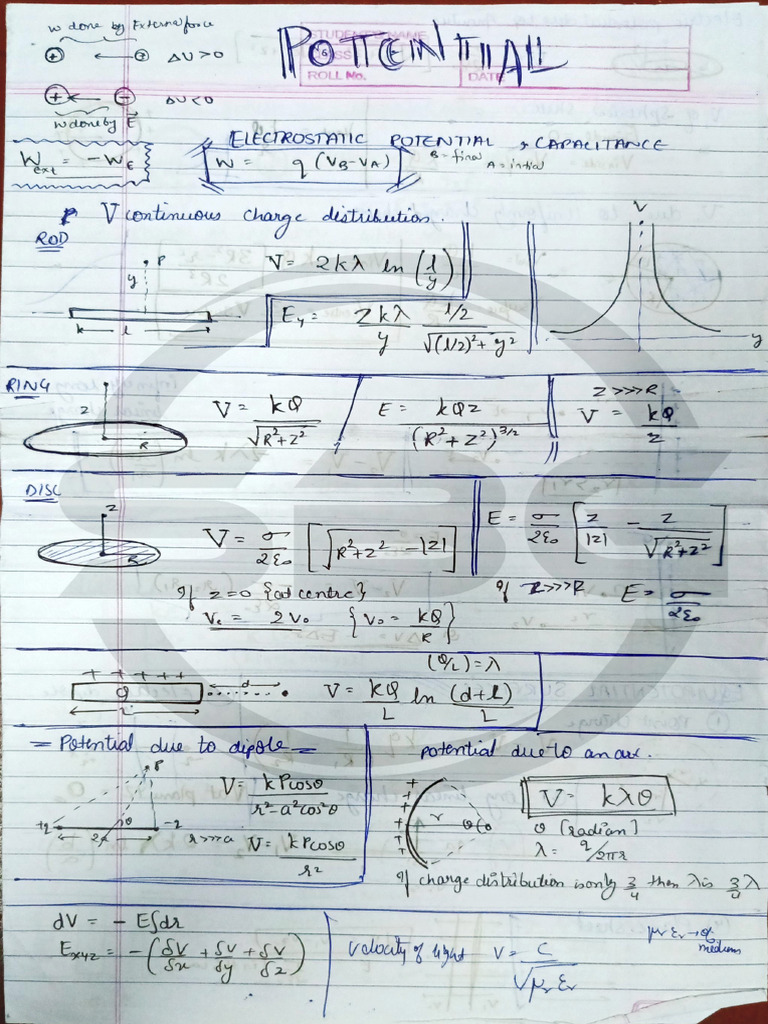 w done by External force
STUDENT NAME
POTENTIAL
CLASS
ROLL No.
DATE
+ ← + ΔU>0
+ ← − ΔU<0
w done by E⃗
W_ext = −W_E
ELECTROSTATIC POTENTIAL & CAPACITANCE
W = q (V_B−V_A)
B = final
A = initial
V continuous charge distribution.
ROD
P
y
l
V = 2kλ ln (l/y)
E_y = 2kλ/y (l/2)/√((l/2)²+y²)
V
y
RING
Z
R
V = kQ/√(R²+Z²)
E = kQz/(R²+Z²)^3/2
Z>>>R
V = kQ/z
DISC
Z
R
V = σ/2ε₀ [√(R²+Z²) − |Z|]
E = σ/2ε₀ [Z/|Z| − Z/√(R²+Z²)]
If z=0 {at centre}
V_c = 2V₀ {V₀ = kQ/R}
If Z>>>R E = σ/2ε₀
SBS
+ + + + +
Q
d
L
(Q/L) = λ
V = kQ/L ln (d+L)/L
= Potential due to dipole =
P
+q
−q
2a
θ
r>>>a
V = kPcosθ/r²−a²cos²θ
V = kPcosθ/r²
potential due to an arc.
+ + + + + +
r
θ
V = kλθ
θ [radian]
λ = q/2πr
If charge distribution is only 3/4 then λ is 3/4 λ
dV = − E∫dr
E_xyz = −(δV/δx + δV/δy + δV/δz)
Velocity of light V = C/√μ_r ε_r
μ_r ε_r → of medium